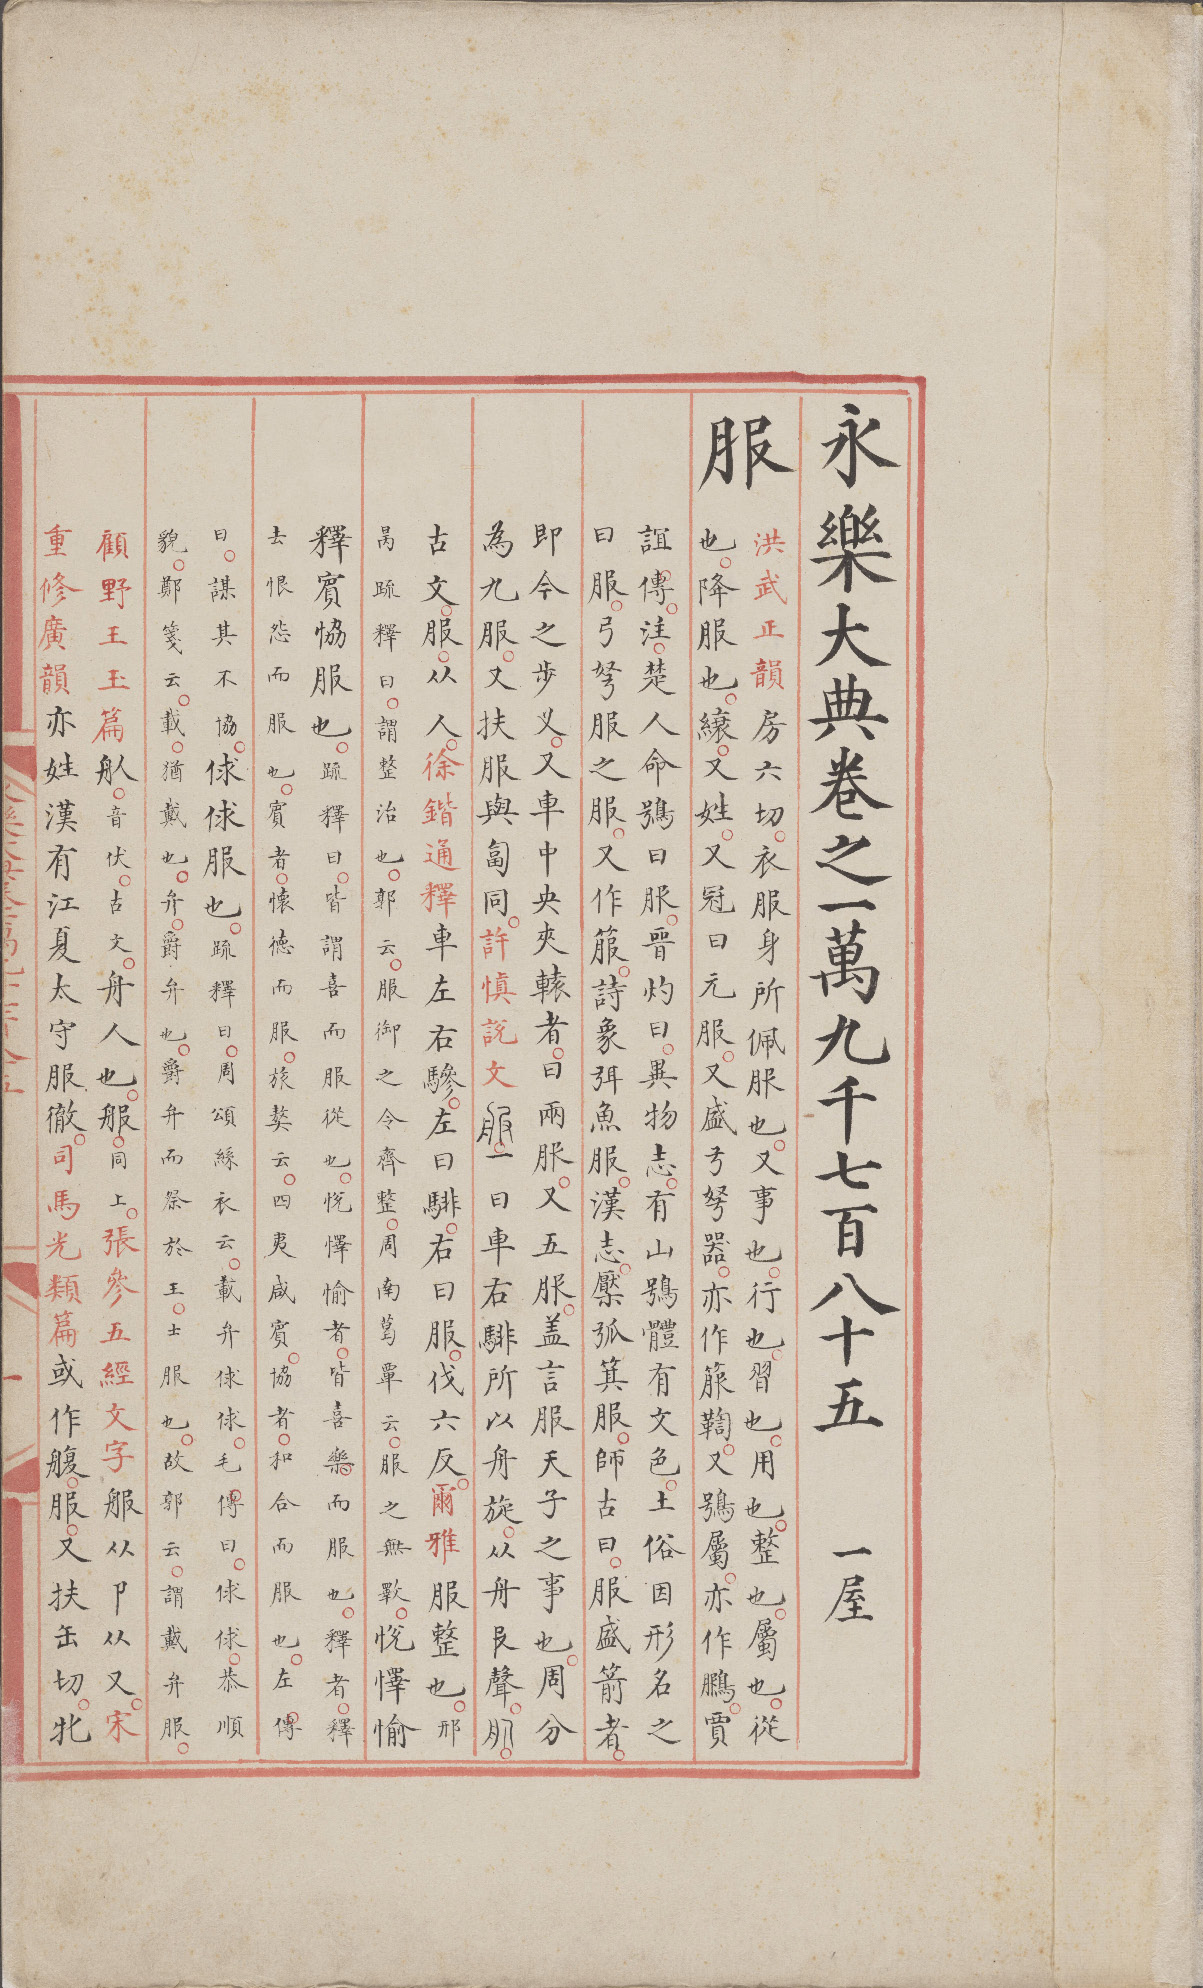 永樂大典卷之一萬九千七百八十五 一屋
服
洪武正韻房六切。衣服身所佩服也。又事也。行也。習也。用也。整也。屬也。從
也。降服也。纕。又姓。又冠曰元服。又盛弓弩器。亦作箙鞫。又鵶屬。亦作鵩。賈
誼傳。注。楚人命鵶曰服。晉灼曰。異物志。有山鵶體有文色。土俗因形名之
曰服。弓弩服之服。又作箙。詩象弭魚服。漢志。檿弧箕服。師古曰。服盛箭者。
即今之步叉。又車中央夾轅者。曰兩服。又五服。盖言服天子之事也。周分
為九服。又扶服與匐同。許慎說文服。一曰車右騑所以舟旋。从舟𠬝聲。
古文。服。从人。徐鍇通釋車左右驂。左曰騑。右曰服。伐六反。爾雅服整也。邢
昺疏釋曰。謂整治也。郭云。服御之令齊整。周南葛覃云。服之無斁。悅懌愉
釋賓協服也。疏釋曰。皆謂喜而服從也。悅懌愉者。皆喜樂而服也。釋者。釋
去恨怨而服也。賓者。懷德而服。旅獒云。四夷咸賓。協者。和合而服也。左傳
曰。謀其不協。俅俅服也。疏釋曰。周頌絲衣云。載弁俅俅。毛傳曰。俅俅。恭順
貌。鄭箋云。載。猶戴也。弁。爵弁也。爵弁而祭於王。士服也。故郭云。謂戴弁服。
顧野王玉篇舧。音伏。古文。舟人也。服。同上。張參五經文字服从卩从又。宋
重修廣韻亦姓漢有江夏太守服徹。司馬光類篇或作艘。服。又扶缶切。牝